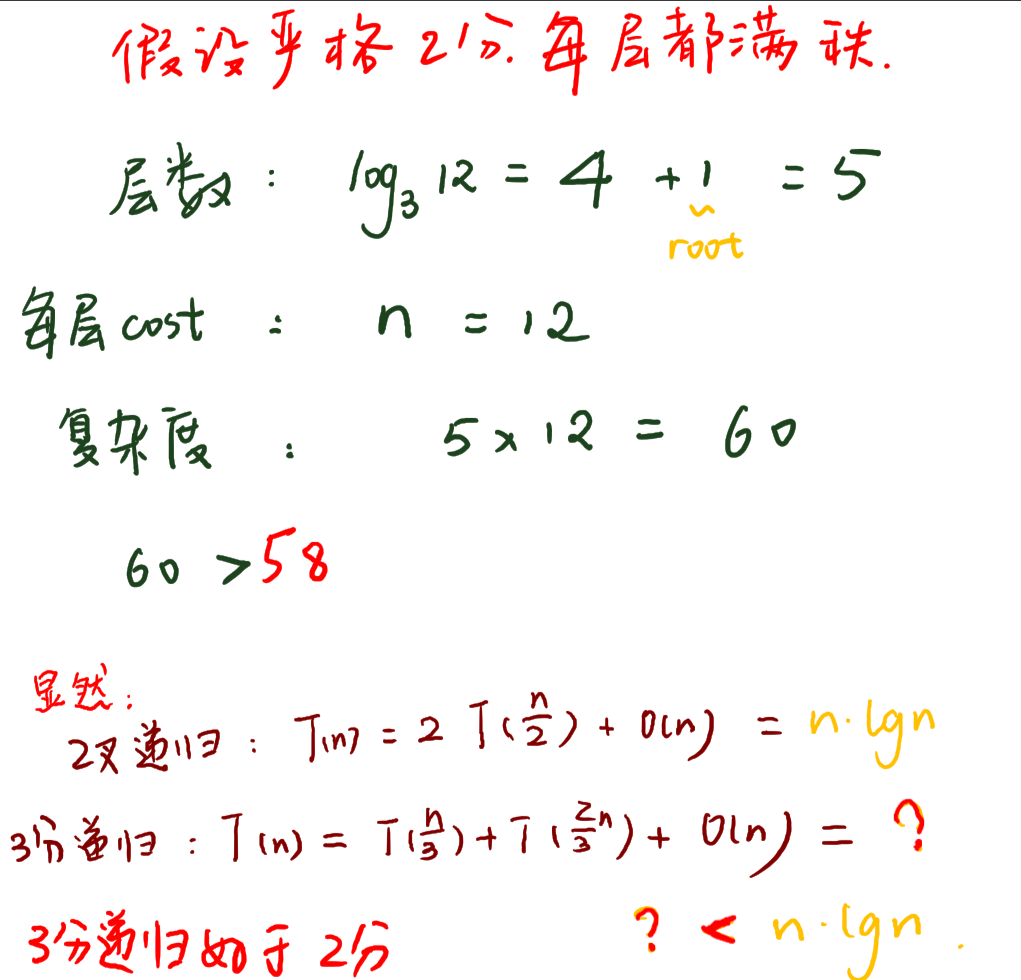 假设严格2分.每层都满秩.
层数: log₃ 12 = 4 + 1 = 5
root
每层cost : n = 12
复杂度 : 5 x 12 = 60
60 > 58
显然:
2叉递归: T(n) = 2 T(n/2) + O(n) = n·lgn
3分递归: T(n) = T(n/3) + T(2/3 n) + O(n) = ?
3分递归 于 2分 ? < n·lgn.